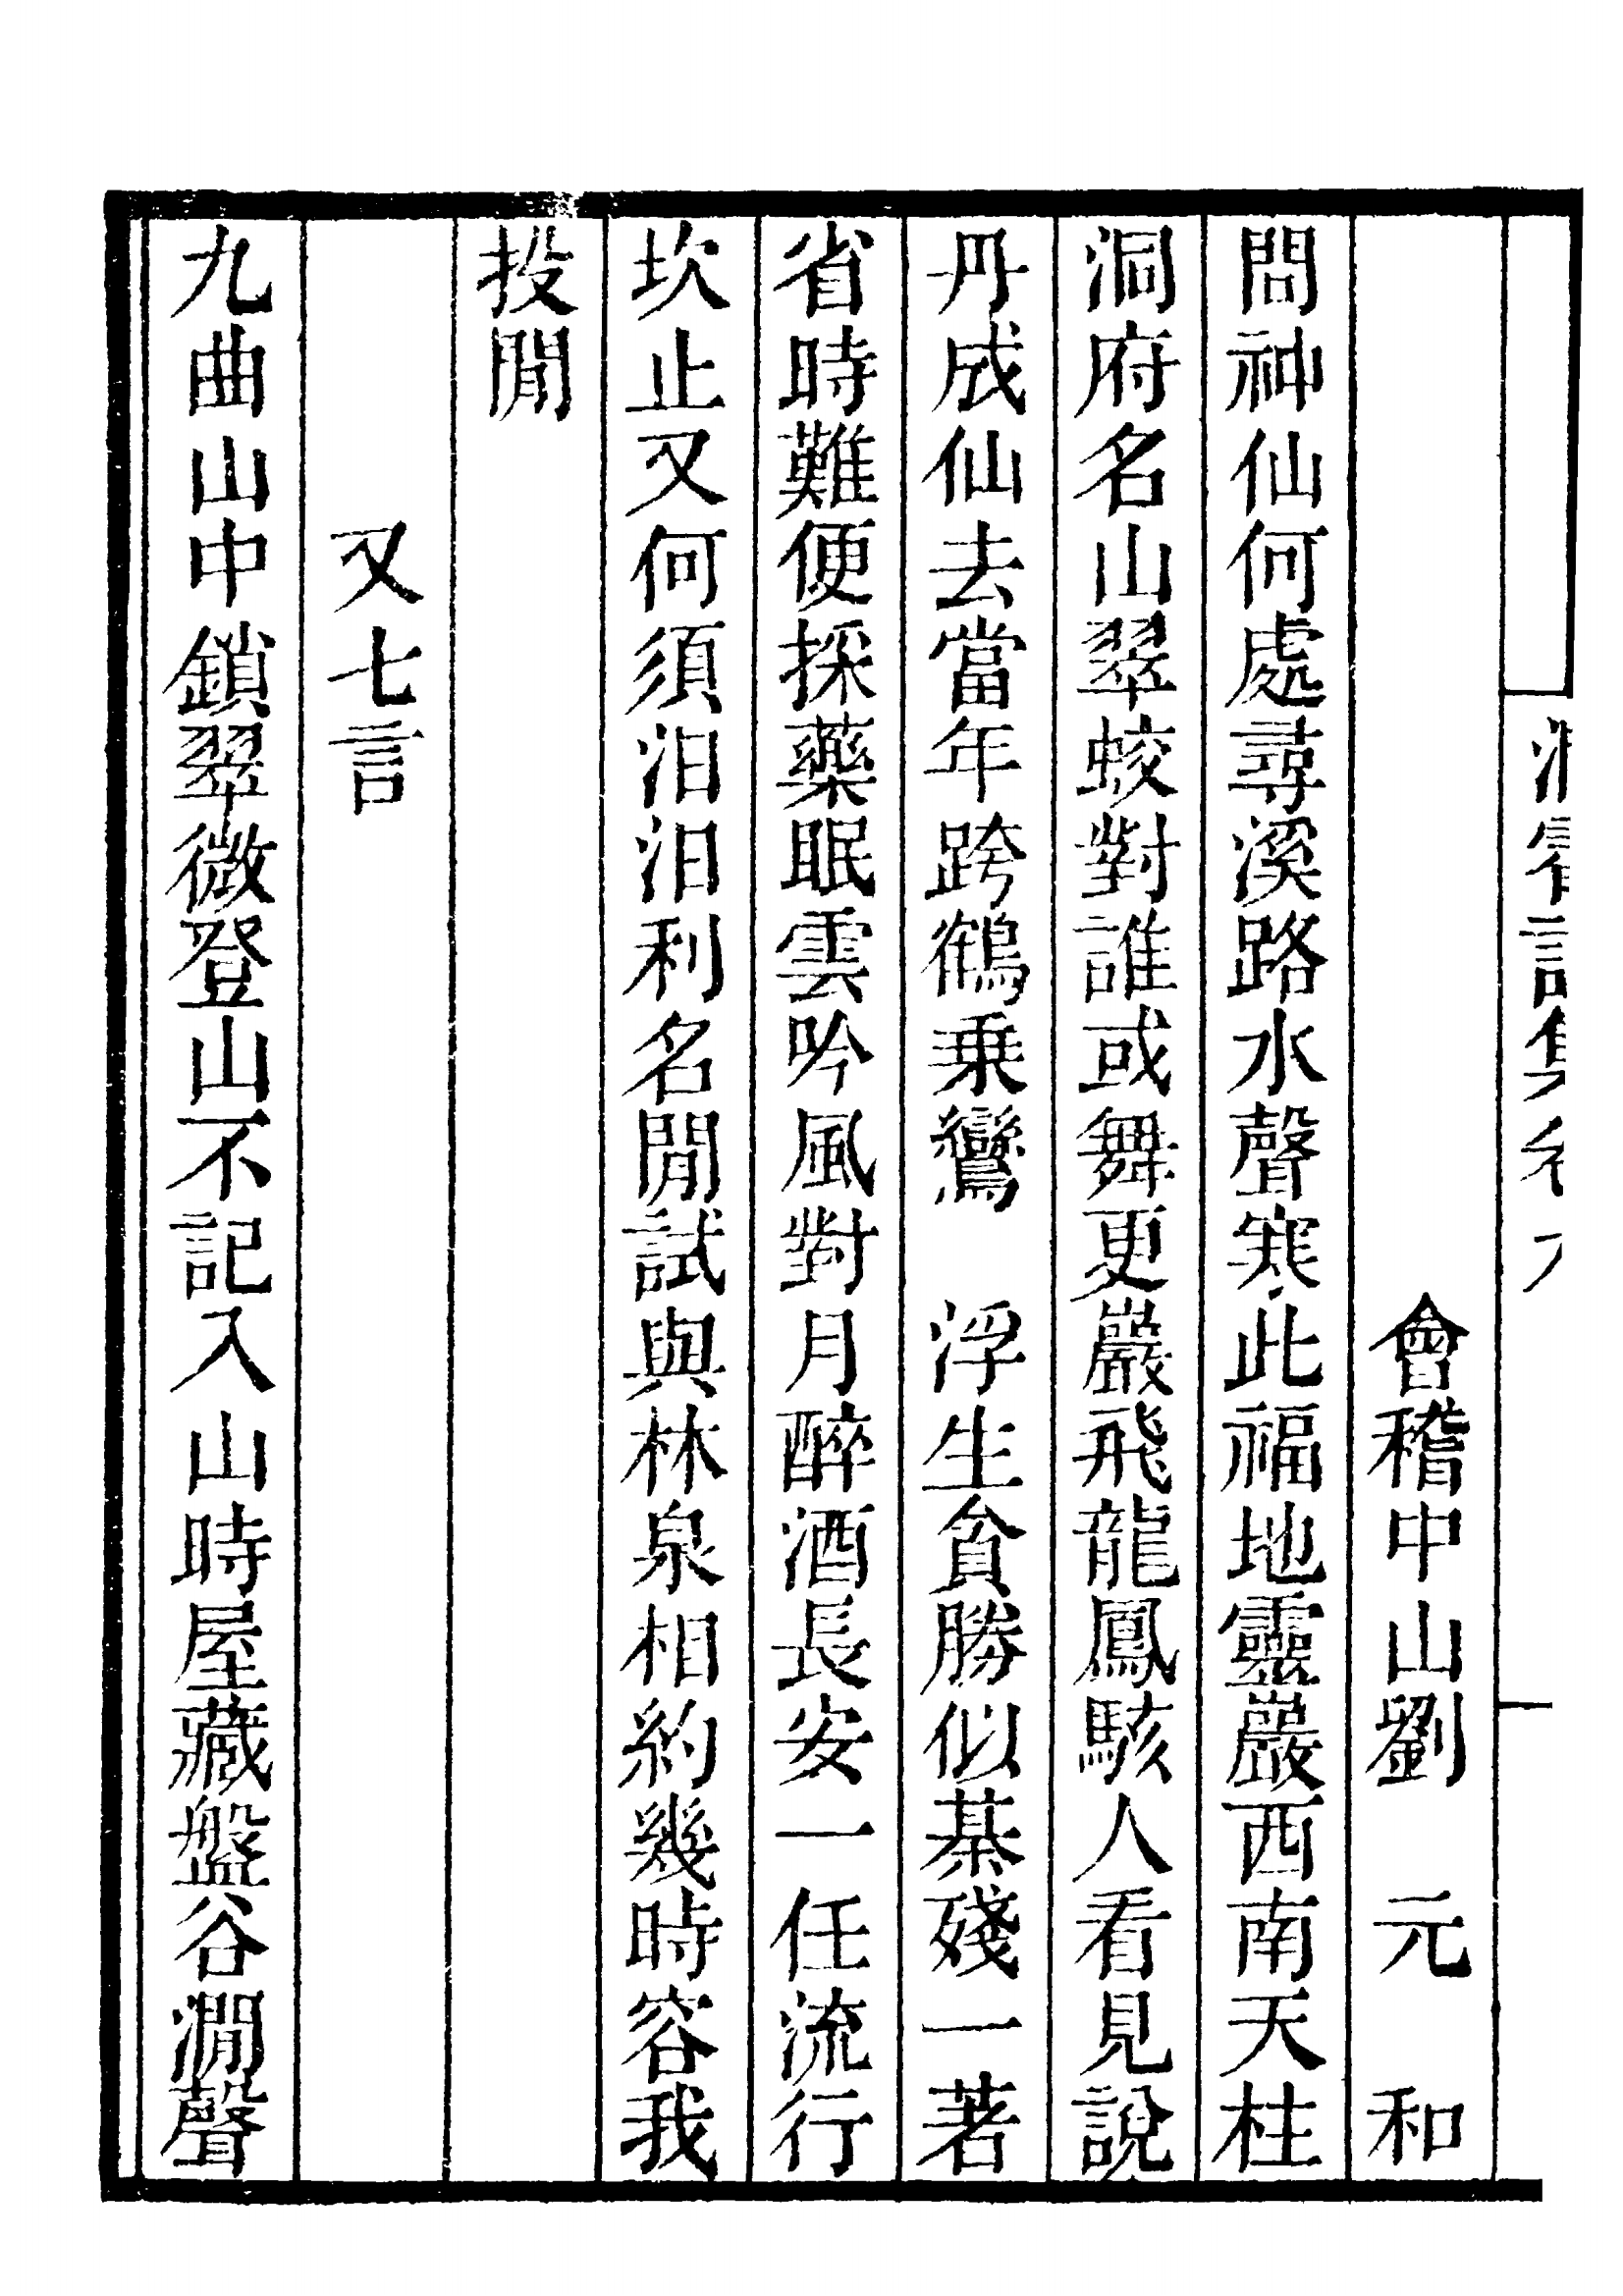 會稽中山劉 元 和
問神仙何處尋溪路水聲寒此福地靈巖西南天柱
洞府名山翠蛟對誰或舞更巖飛龍鳳駭人看見說
丹成仙去當年跨鶴乗鸞 浮生貪勝似棊殘一著
省時難便採藥眠雲吟風對月醉酒長安一任流行
坎止又何須汨汨利名閒試與林泉相約幾時容我
投閒
又七言
九曲山中鎖翠微登山不記入山時屋藏盤谷澗聲